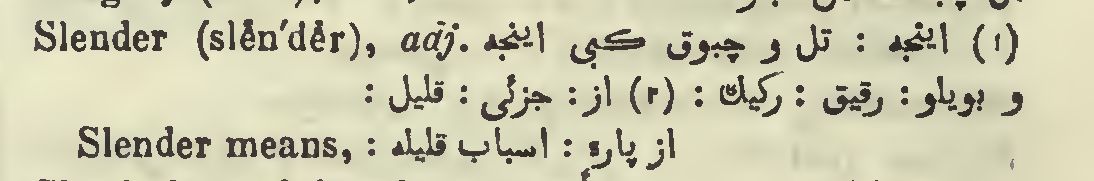 Slender (slĕn′dĕr), adj. (۱) اینجه : تل و چبوق كبی اینجه
و بویلو : رقیق : ركیك : (۲) از : جزئی : قلیل :
Slender means, : از پاره : اسباب قلیله